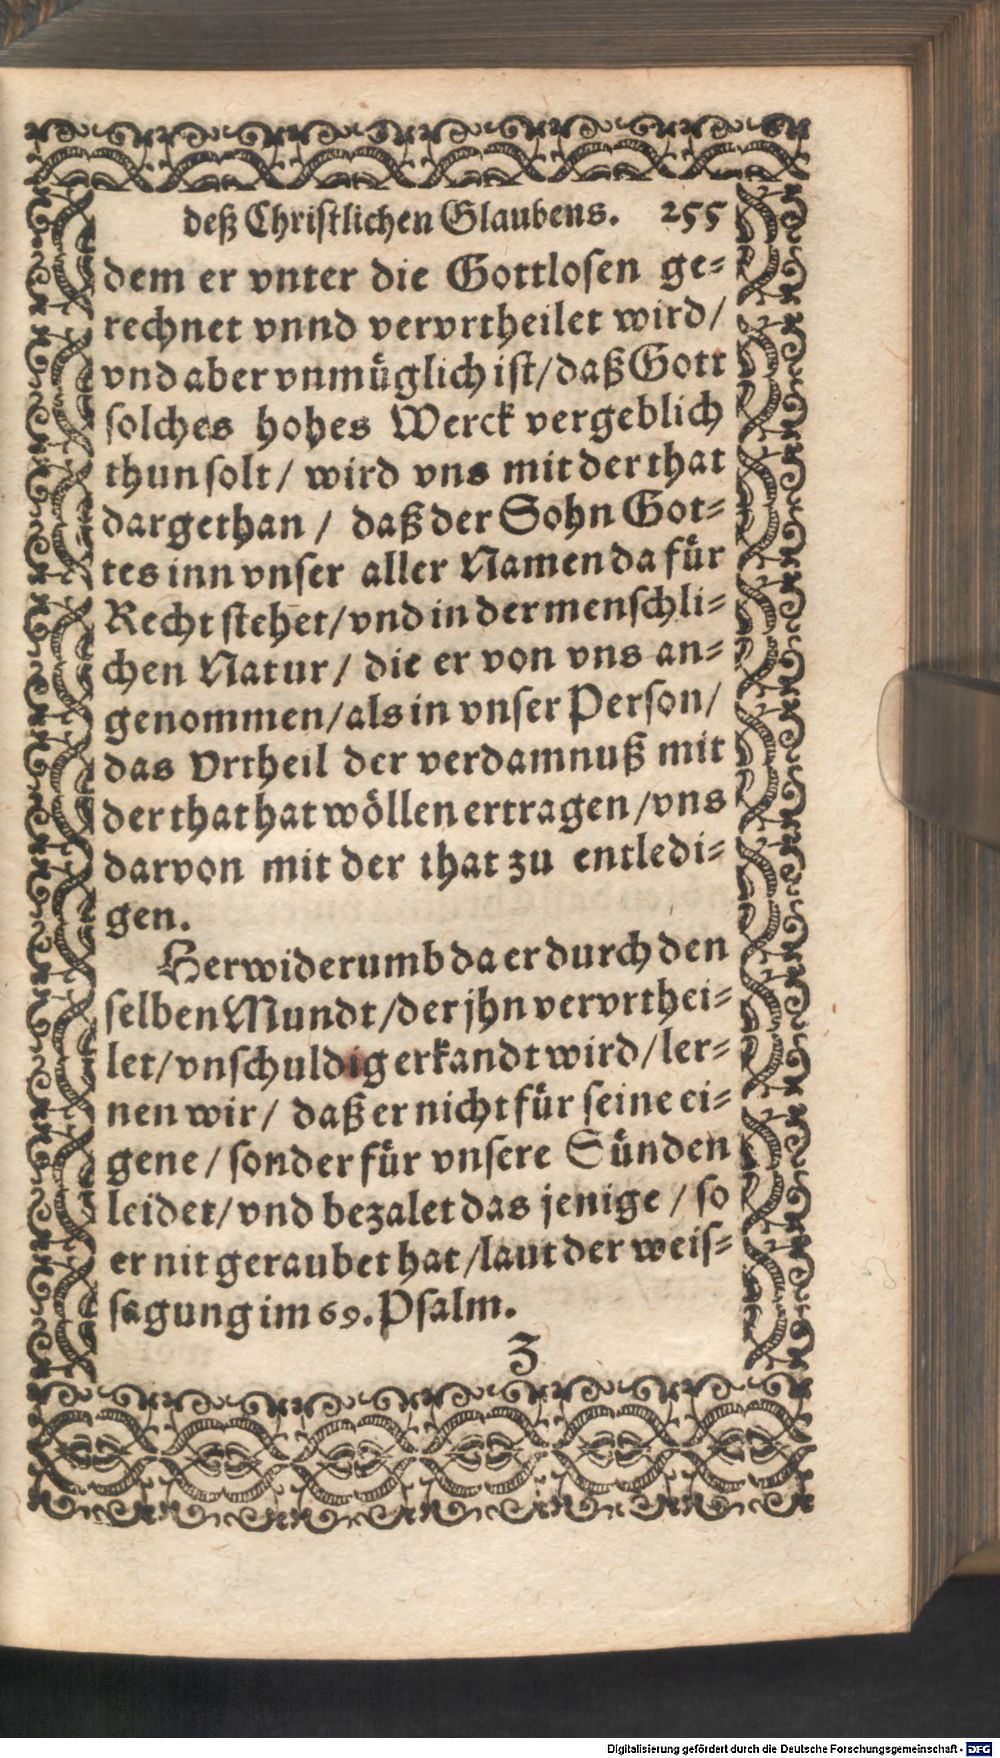 deß Christlichen Glaubens. 255
dem er vnter die Gottlosen ge⸗
rechnet vnnd vervrtheilet wird/
vnd aber vnmüglich ist/daß Gott
solches hohes Werck vergeblich
thun solt/ wird vns mit der that
dargethan / daß der Sohn Got⸗
tes inn vnser aller Namen da für
Recht stehet/vnd in der menschli⸗
chen Natur/ die er von vns an⸗
genommen/als in vnser Person/
das Vrtheil der verdamnuß mit
der that hat wöllen ertragen/vns
darvon mit der that zu entledi⸗
gen.
Herwiderumb da er durch den
selben Mundt/der jhn vervrthei⸗
let/vnschuldig erkandt wird/ler⸗
nen wir/ daß er nicht für seine ei⸗
gene/sonder für vnsere Sünden
leidet/vnd bezalet das jenige / so
er nit geraubet hat/laut der weis⸗
sagung im 69. Psalm.
Z
Digitalisierung gefördert durch die Deutsche Forschungsgemeinschaft - DFG